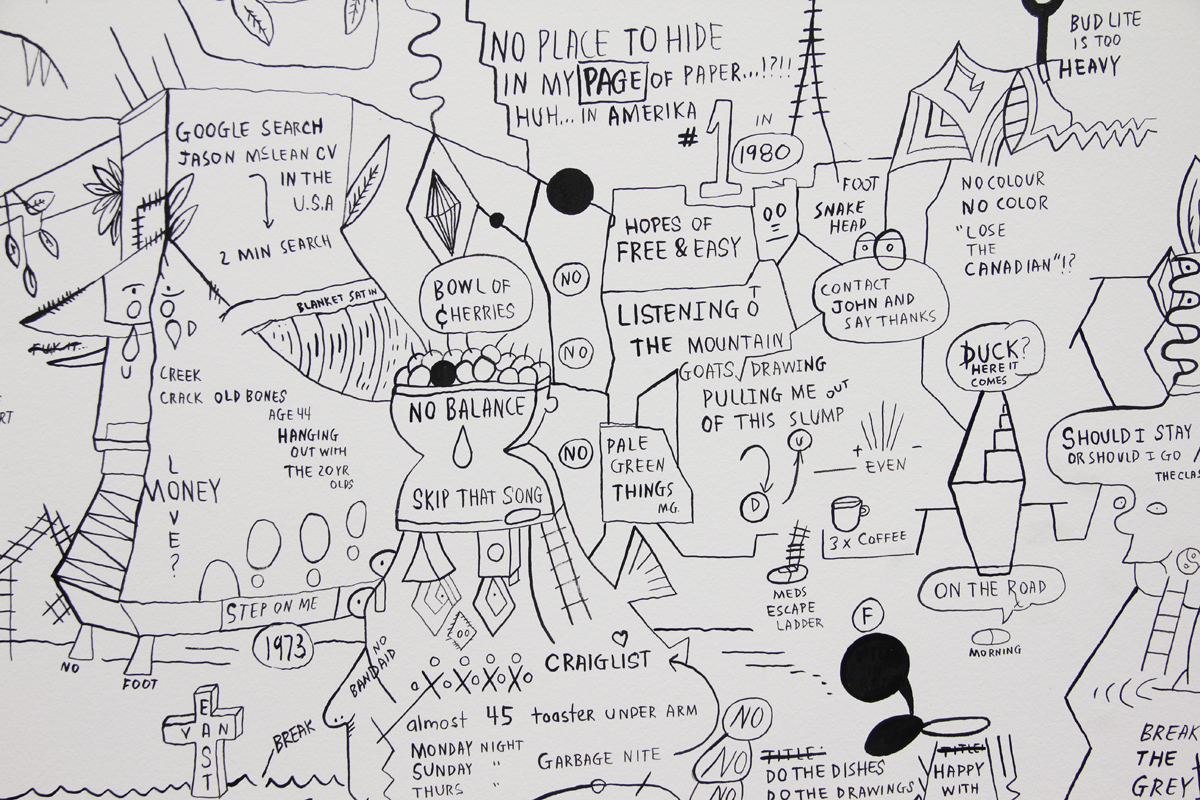 NO PLACE TO HIDE
IN MY PAGE OF PAPER...!?!!
HUH... IN AMERIKA
#1 IN
1980
BUD LITE
IS TOO
HEAVY
GOOGLE SEARCH
JASON McLEAN CV
IN THE
U.S.A
2 MIN SEARCH
BLANKET SAT IN
BOWL OF
CHERRIES
NO BALANCE
SKIP THAT SONG
NO
NO
NO
HOPES OF
FREE & EASY
LISTENING TO
THE MOUNTAIN
GOATS / DRAWING
PULLING ME OUT
OF THIS SLUMP
FOOT
SNAKE
HEAD
CONTACT
JOHN AND
SAY THANKS
NO COLOUR
NO COLOR
"LOSE
THE
CANADIAN"!?
DUCK?
HERE IT
COMES
SHOULD I STAY
OR SHOULD I GO
THE CLAS
D
CREEK
CRACK OLD BONES
AGE 44
HANGING
OUT WITH
THE 20 YR
OLDS
L
MONEY
V
E
?
PALE
GREEN
THINGS
M.G.
U
D
+ EVEN -
3 X COFFEE
MEDS
ESCAPE
LADDER
ON THE ROAD
MORNING
STEP ON ME
1973
NO
FOOT
NO
BANDAID
EAST
VAN
BREAK
CRAIGLIST
almost 45 toaster UNDER ARM
MONDAY NIGHT
SUNDAY "
THURS "
GARBAGE NITE
F
NO
NO
NO
TITLE:
DO THE DISHES
DO THE DRAWINGS
TITLE:
HAPPY
WITH
BREAK
THE
GREY